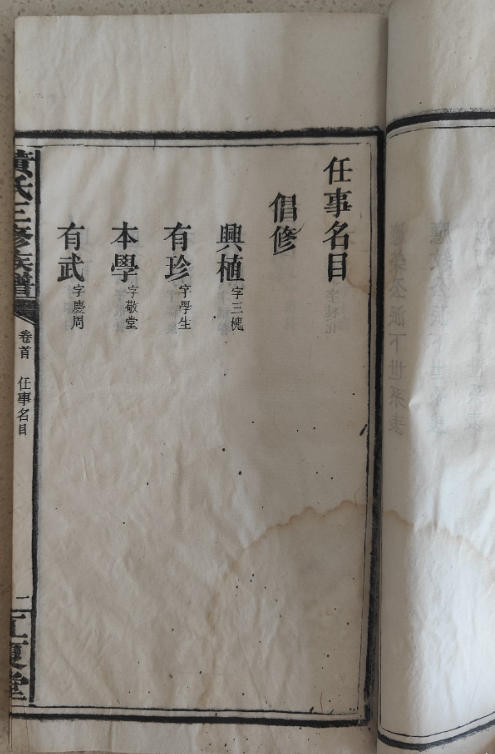 任事名目
倡修
興植字三槐
有珍字學生
本學字敬堂
有武字慶周
黃氏三修族譜
卷首
任事名目
二
江夏堂